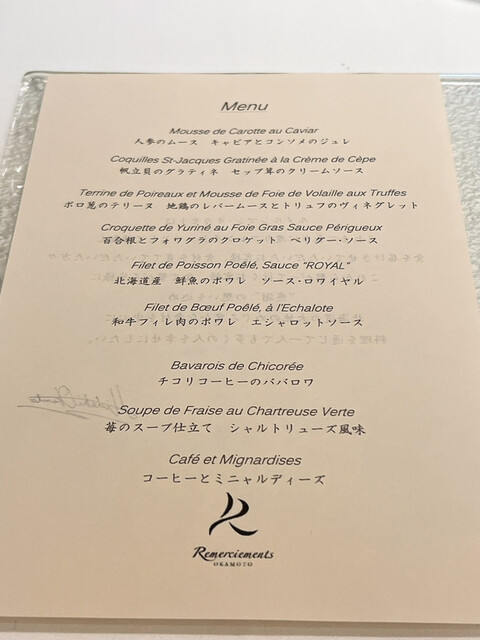 Menu
Mousse de Carotte au Caviar
人参のムース　キャビアとコンソメのジュレ
Coquilles St-Jacques Gratinée à la Crème de Cèpe
帆立貝のグラティネ　セップ茸のクリームソース
Terrine de Poireaux et Mousse de Foie de Volaille aux Truffes
ポロ葱のテリーヌ　地鶏のレバームースとトリュフのヴィネグレット
Croquette de Yuriné au Foie Gras Sauce Périgueux
百合根とフォワグラのクロケット　ペリグー・ソース
Filet de Poisson Poêlé, Sauce “ROYAL”
北海道産　鮮魚のポワレ　ソース・ロワイヤル
Filet de Bœuf Poêlé, à l’Echalote
和牛フィレ肉のポワレ　エシャロットソース
Bavarois de Chicorée
チコリコーヒーのババロワ
Soupe de Fraise au Chartreuse Verte
苺のスープ仕立て　シャルトリューズ風味
Café et Mignardises
コーヒーとミニャルディーズ
Remerciements
OKAMOTO